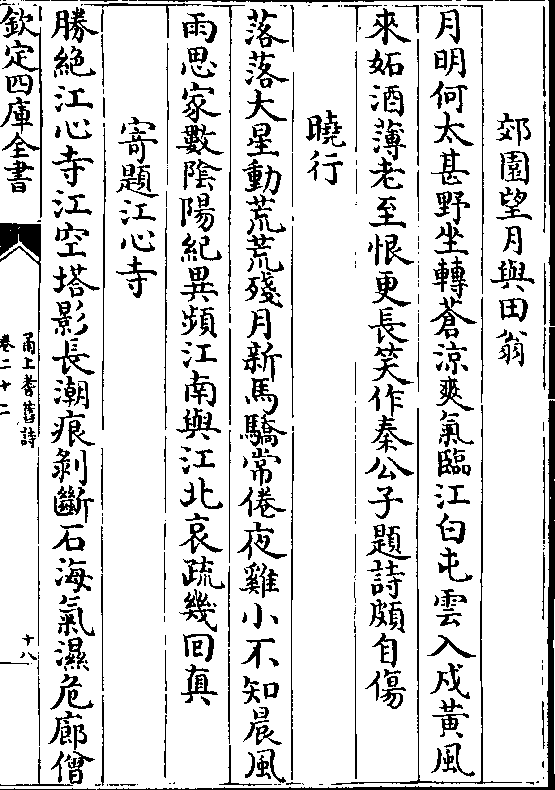 郊園望月與田翁
月明何太甚野坐轉蒼涼爽氣臨江白屯雲入戍黃風
來妬酒薄老至恨更長笑作秦公子題詩頗自傷
曉行
落落大星動荒荒殘月新馬驕常倦夜雞小不知晨風
雨思家數陰陽紀異頻江南與江北哀疏幾回真
寄題江心寺
勝絶江心寺江空塔影長潮痕剝斷石海氣濕危廊僧
欽定四庫全書
甬上耆舊詩
卷二十二
十八